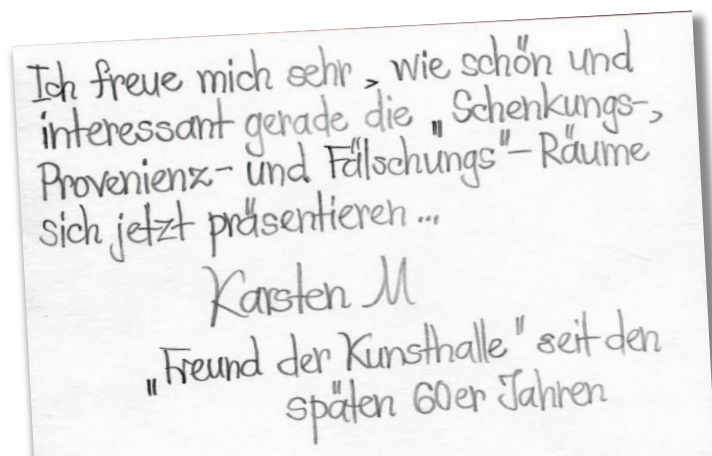 Ich freue mich sehr, wie schön und
interessant gerade die „Schenkungs-,
Provenienz- und Fälschungs"-Räume
sich jetzt präsentieren...
Karsten M
„Freund der Kunsthalle" seit den
späten 60er Jahren